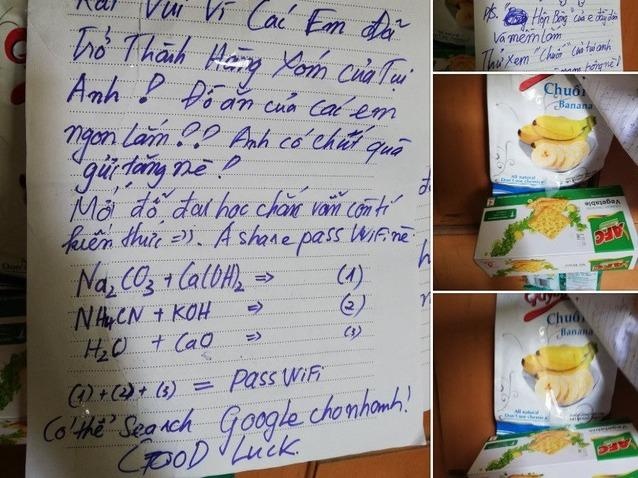 Rất Vui Vì Các Em đã
Trở Thành Hàng Xóm của Tụi
Anh! Đồ ăn của các em
ngon lắm!?? Anh có chút quà
gửi tặng nè!
Mới đỗ đại học chắc vẫn còn tí
kiến thức =)). A share pass WiFi nè
Na2CO3 + Ca(OH)2 => (1)
NH4CN + KOH => (2)
H2O + CaO => (3)
(1) + (2) + (3) = Pass WiFi
Có thể Search Google cho nhanh!
GOOD LUCK.
P/s. Hộp Bông của e đầy đặn
Và mềm lắm
Thử xem "Chuối" của tụi anh
Chuối
Banana
All natural
Don't use chemical
Vegetable
AFC
Chuối
Banana
All natural
Don't use chemical
AFC